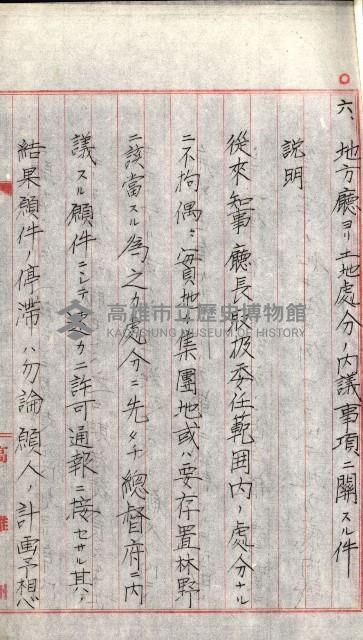 六、地方廳ヨリ土地処分ノ内議事項ニ關スル件
説明
從來知事廳長扱委任範囲内ノ処分ナル
ニ不拘偶々實地カ集團地或ハ要存置林野
ニ該當スル為之カ處分ニ先タチ總督府ニ内
議スル願件ニシテ之カニ許可通報ニ接セサル其ハ
結果願件ノ停滞ハ勿論願人ノ計画予想
高雄州
高雄市立歷史博物館
KAOHSIUNG MUSEUM OF HISTORY